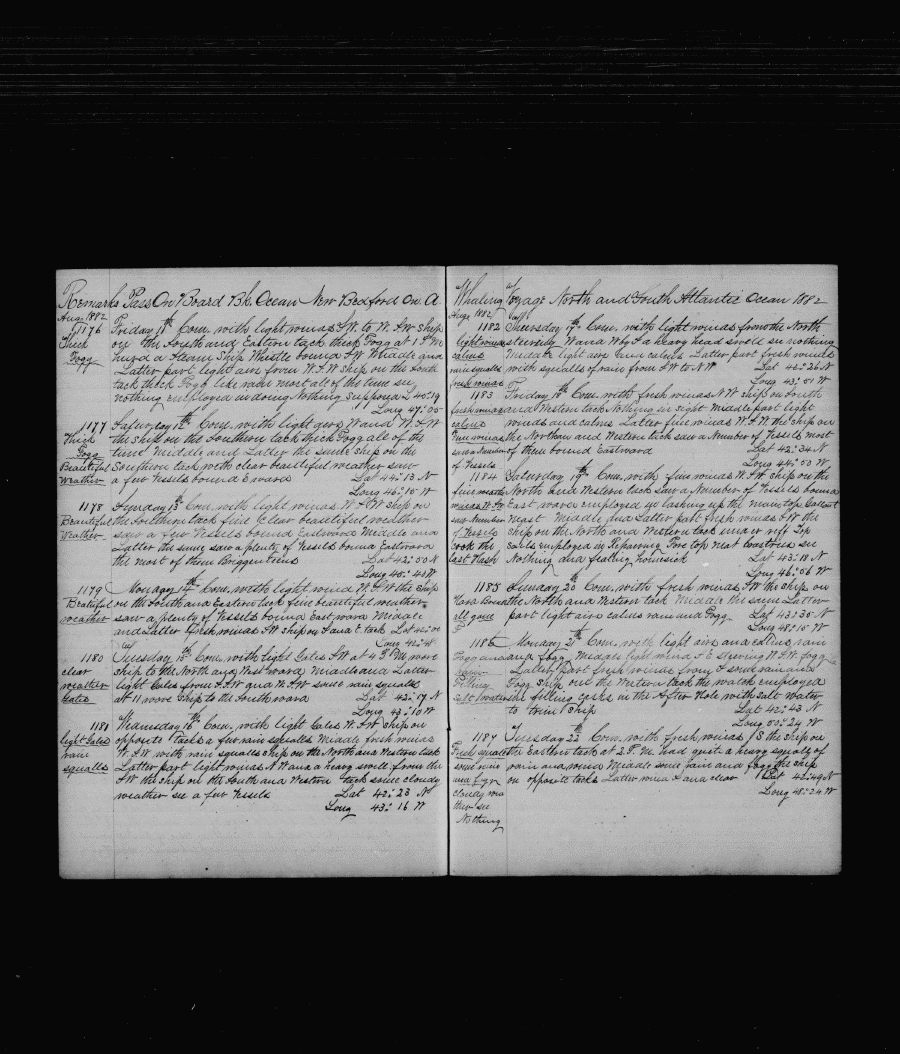 Remarks Pass On Board Bk. Ocean New Bedford On A
Aug 1882
1176 Friday 11th Com. with light winds S.W. to W.S.W ship
Thick on the South and Eastern tack thick Fogg at 1 P.M
Fogg heard a Steam Ship Whistle bound S.W Middle and
Latter part light airs from W.S.W ship on the South
tack thick Fogg like rain most all of the time see
nothing employed in doing Nothing Supposed L 45:19
Long 47:05
1177 Saturday 12th Com. with light airs W and W.S.W
Thick the ship on the Southern tack thick Fogg all of the
Fogg time Middle and Latter the same ship on the
Beautiful Southern tack with clear beautiful weather saw
weather a few Vessels bound E ward Lat 44:13 N
Long 46:15 W
1178 Sunday 13th Com. with light winds W.S.W ship on
Beautiful the Southern tack fine clear beautiful weather
weather saw a few Vessels bound Eastward Middle and
Latter the same saw a plenty of Vessels bound Eastward
the most of them Briggenteens Lat 42:50 N
Long 45:43 W
1179 Monday 14th Com. with light wind W.S.W the ship
Beautiful on the South and Eastern tack fine beautiful weather
weather saw a plenty of Vessels bound East ward Middle
and Latter fresh winds S.W ship on S and E tack Lat 42:00
Long 42:48
1180 Tuesday 15th Com. with light Gales S.W at 4 P.M wore
clear ship to the North and West ward Middle and Latter
weather light Gales from S.S.W and W.S.W some rain squalls
Gales at 11 wore ship to the South ward Lat 42:17 N
Long 43:10 W
1181 Wednsday 16th Com. with light Gales W.S.W ship on
light Gales opposite tacks a few rain squalls Middle fresh winds
rain W.S.W with rain squalls ship on the North and Western tack
squalls Latter part light winds N.W and a heavy swell from the
S.W the ship on the South and Western tack some cloudy
weather see a few Vessels Lat 42:23 N
Long 43:16 W
Whaling Voyage North and South Atlantic Ocean 1882
Auge 1882
1182 Thursday 17th Com. with light winds from the North
light winds steering W and W by S a heavy head swell see nothing
calms Middle light airs and calms Latter part fresh winds
rain squalls with squalls of rain from S.W to N.W Lat 42:26 N
fresh winds Long 43:51 W
1183 Friday 18th Com. fresh winds N.W ship on South
fresh winds and Western tack Nothing in sight Middle part light
calms winds and calms Latter fine winds W.S.W the ship on
fine winds the Northern and Western tack saw a Number of Vessels most
saw a Number of them bound Eastward Lat 42:34 N
of Vessels Long 44:50 W
1184 Saturday 19th Com. with fine winds W.S.W ship on the
fine weather North and Western tack saw a Number of Vessels bound
East ward employed in lashing up the main top Gallant
saw Number mast Middle and Latter part fresh winds S.W the
of Vessels ship on the North and Western tack under rift Top
Cook the sails employed in Repairing Fore top mast
last Hash Nothing and feeling homesick Lat 43:18 N
Long 46:56 W
1185 Sunday 20 Com. with fresh winds S.W the ship on
Hard Bread the North and Western tack Middle the same Latter
all gone part light airs calms rain and Fogg Lat 43:35 N
Long 48:15 W
1186 Monday 21st Com. with light airs and calms rain
Fogg and and fogg Middle light wind S.E steering W.S.W fogg
rain Latter part fresh winds from S some rain and
Filling Fogg ship on the Western tack the watch employed
salt water in filling casks in the After Hole with salt water
to trim ship Lat 42:43 N
Long 50:24 W
1187 Tuesday 22 Com. with fresh winds S the ship on
Fresh squall the Eastern tack at 2 P.M. had quit a heavy squall of
some rain rain and wind Middle some rain and fogg the ship
and fogg on opposite tacks Latter wind S and clear Lat 42:49 N
cloudy wea Long 48:24 W
ther see
Nothing